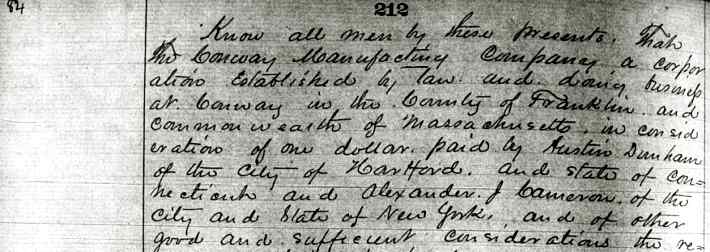 84
212
Know all men by these presents. That
the Conway Manufacturing Company a corpor
ation Established by law and doing business
at Conway in the County of Franklin and
commonwealth of Massachusetts. in consid
eration of one dollar paid by Austin Dunham
of the City of Hartford. and State of Con=
necticut and Alexander. J Cameron. of the
City and State of New York, and of other
good and sufficient considerations the re=